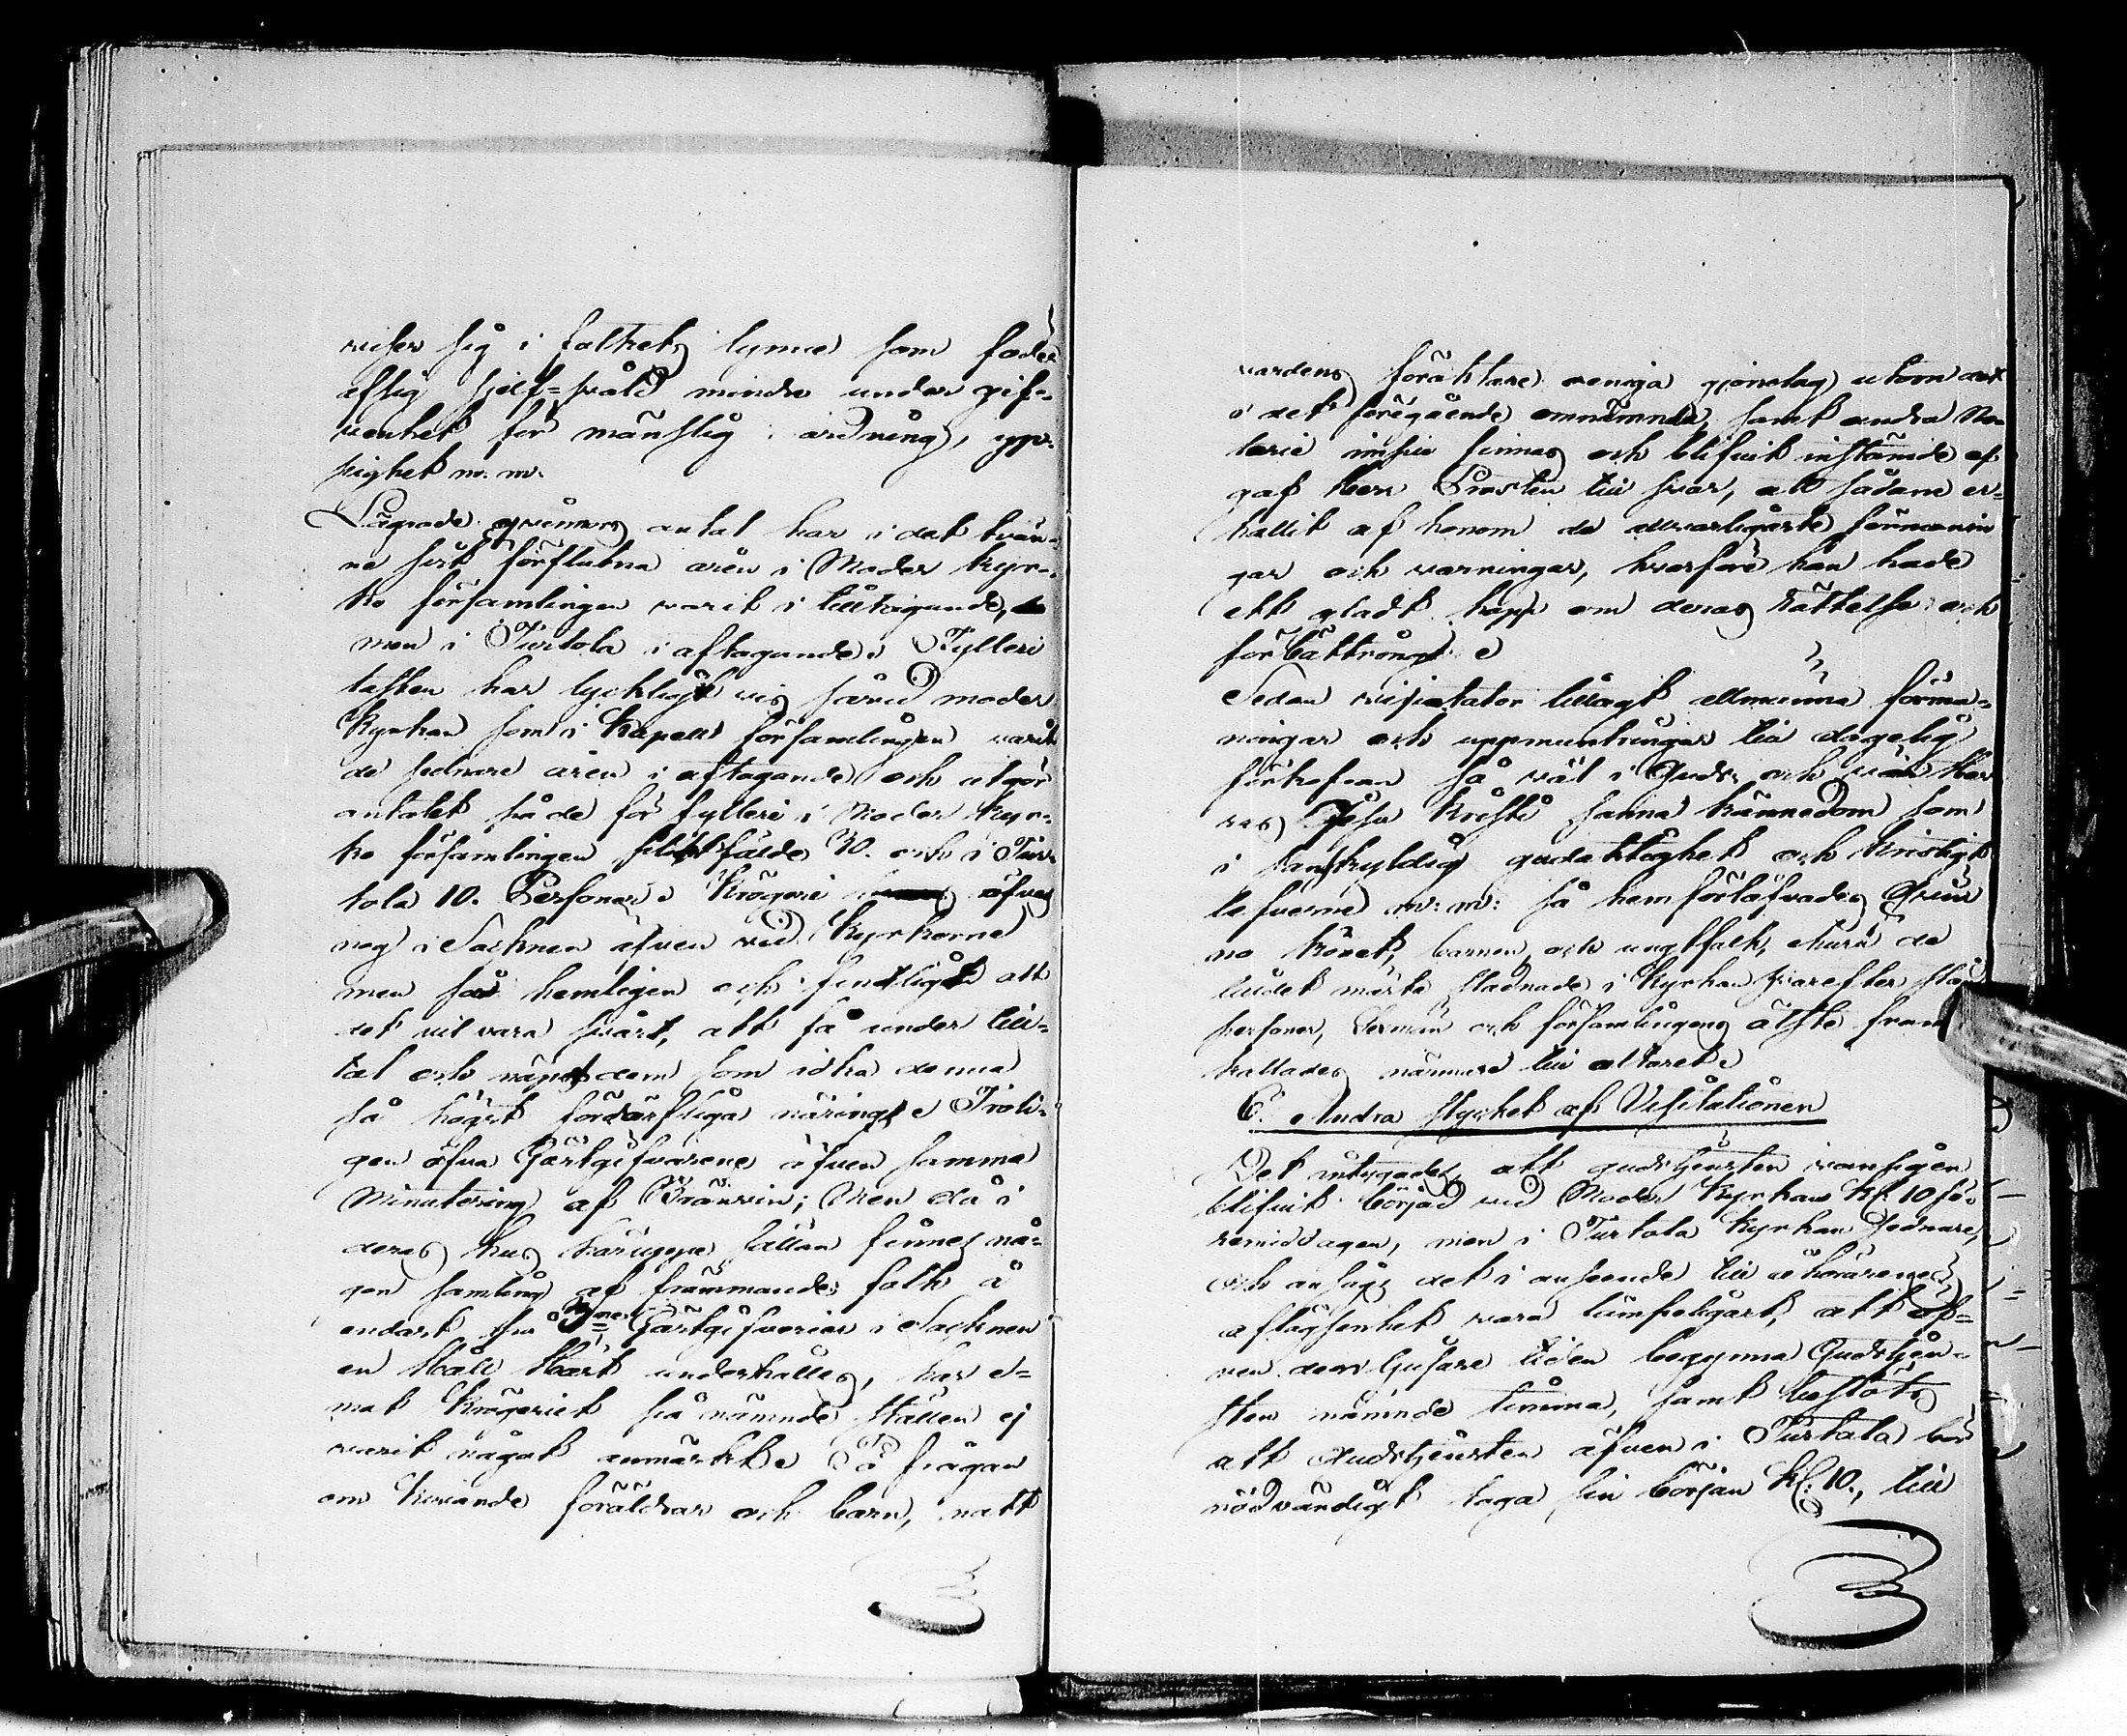 viser sig i folkets lynne som foder
aflig sjelf=svåld mindre under gif-
venhet för mänslig ordning, ypp-
pighet m. m.
Lägrade qvinnors antal har i det trän-
ne sist förflutna åren i Moder kyr-
ko församlingen varit i tilltagande,
men i Turtola i aftagande. Fylleri
lasten har lyckligt vis såväl moder
Kyrkan som i Kapell församlingen varit
de sednare åren i aftagande och utgör
antalet på de för fylleri i Moder kyr-
ko församlingen sakfälde 30. och i Tur-
tola 10. Personer. Krögeri öfves
nog i Socknen äfven vid Kyrkorne
men så hemligen och fintligt att
det vil vara svårt, att få under till-
tal och näpst dem som idka denna
så högst fördärfliga näring. Troli-
gen öfva Gästgifvarene äfven samma
Minutering af Bränvin; Men då i
deras hus häruppe sällan finnes nå-
gon samling af främmande folk å
endast hvilket Gästgifverier i Socknen
en Håll Häst underhålles, har e-
mot krögeriet på nämnde ställen ej
varit något anmärkt. På frågan
om kivande föräldrar och barn, natt
vardens föraktare veniga gjenslag utom det
i det föregående omnämnde, samt andra No-
torie impii finnas och blifvit instämde af
gaf Herr Prosten till svar, att sådane er-
hållit af honom de allvarligaste förmanin
gar och varningar, hvarföre han hade
ett gladt hopp om deras rättelse och
förbättring.
Sedan visitator tillagt allmänna förma-
ningar och uppmuntringar till dagelig
förkofran så väl i Guds och vår Her
res Jesu Kristi sanna kännedom som
i sannskyldig gudaktighet och kristligt
lefverne m: m: så hemförlofvades qvin
no könet, barnen och ungt folk, ehuru de
ludet märka stadnade i Kyrkan hvarefter stån
personer, Sexmän och församlingens älste fram
kallades närmare till altaret.
C. Andra stycket af Visitationen
Det intygades att gudstjensten vanligen
blifvit börjad vid Moder Kyrkan Kl. 10 fö-
remiddagen, men i Turtola Kyrkan sednare,
och ansågs det i anseende till åhörarenes
aflägsenhet vara lämpeligast, att äf-
ven den ljusare tiden begynna Gudstjen-
sten nämnde timma, samt beslöts
att Gudstjensten äfven i Turtola bör
nödvändigt taga sin början Kl. 10., till